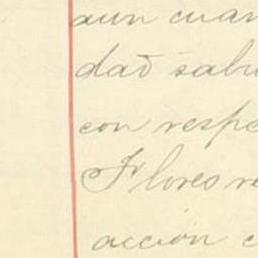 aun cuan
dad sabi
con respe
Flores re
acción c